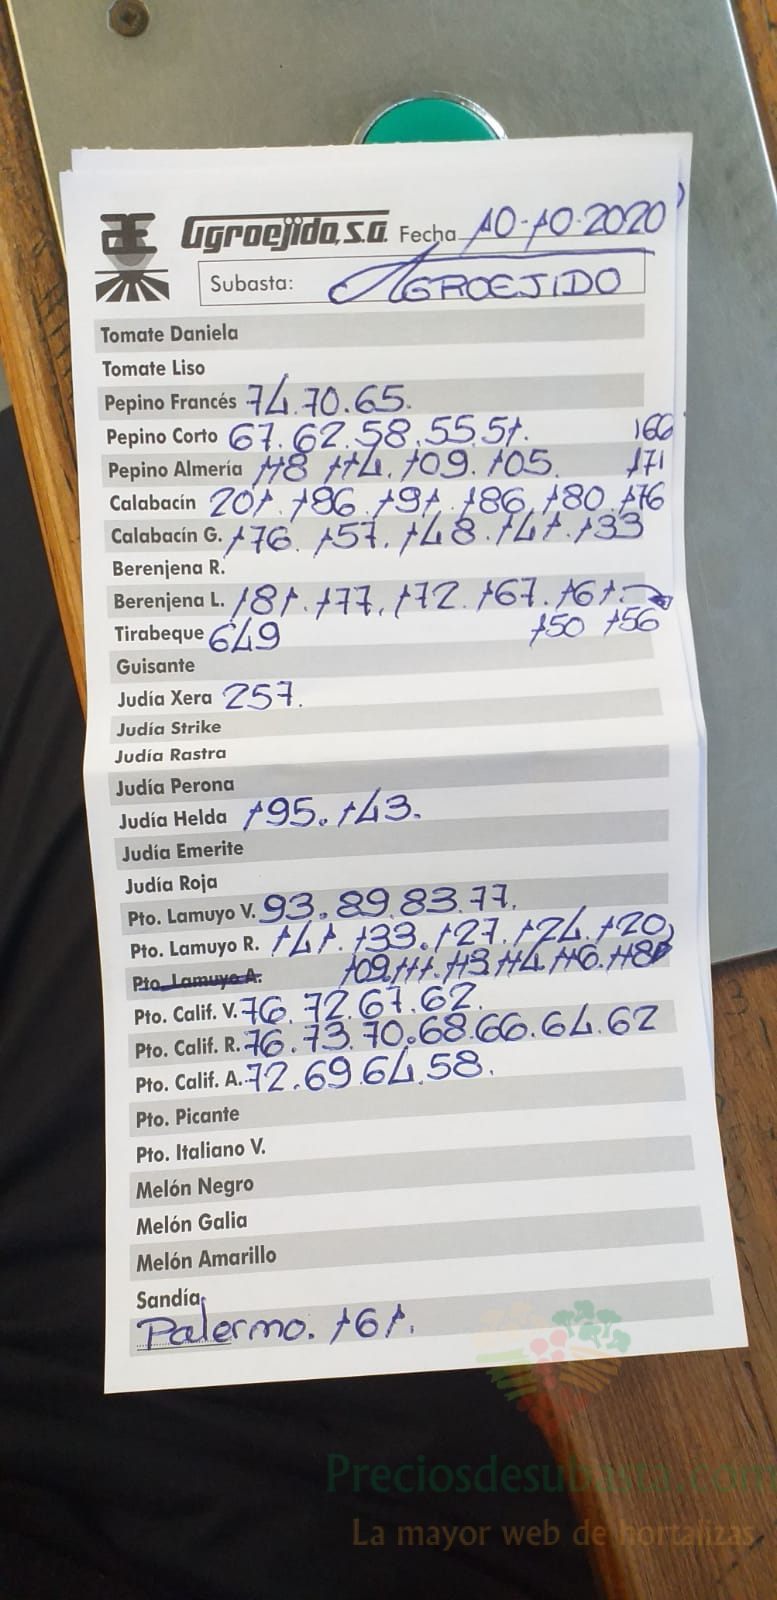 Agroejido, s.a. Fecha 10-10-2020
Subasta: AGROEJIDO
Tomate Daniela
Tomate Liso
Pepino Francés 74.70.65.
Pepino Corto 67.62.58.55.51. 166
Pepino Almería 118 114.109.105. 171
Calabacín 201.196.191.186.180.176
Calabacín G. 176.157.148.141.133
Berenjena R.
Berenjena L. 181.177.172.167.161.
Tirabeque 649 150 156
Guisante
Judía Xera 257.
Judía Strike
Judía Rastra
Judía Perona
Judía Helda 195.143.
Judía Emerite
Judía Roja
Pto. Lamuyo V. 93.89.83.77.
Pto. Lamuyo R. 141.133.127.124.120
Pto. Lamuyo A. 109.111.113.114.116.118
Pto. Calif. V. 76.72.67.62.
Pto. Calif. R. 76.73.70.68.66.64.62
Pto. Calif. A. 72.69.64.58.
Pto. Picante
Pto. Italiano V.
Melón Negro
Melón Galia
Melón Amarillo
Sandía
Palermo. 161.
Preciosdesubasta.com
La mayor web de hortalizas